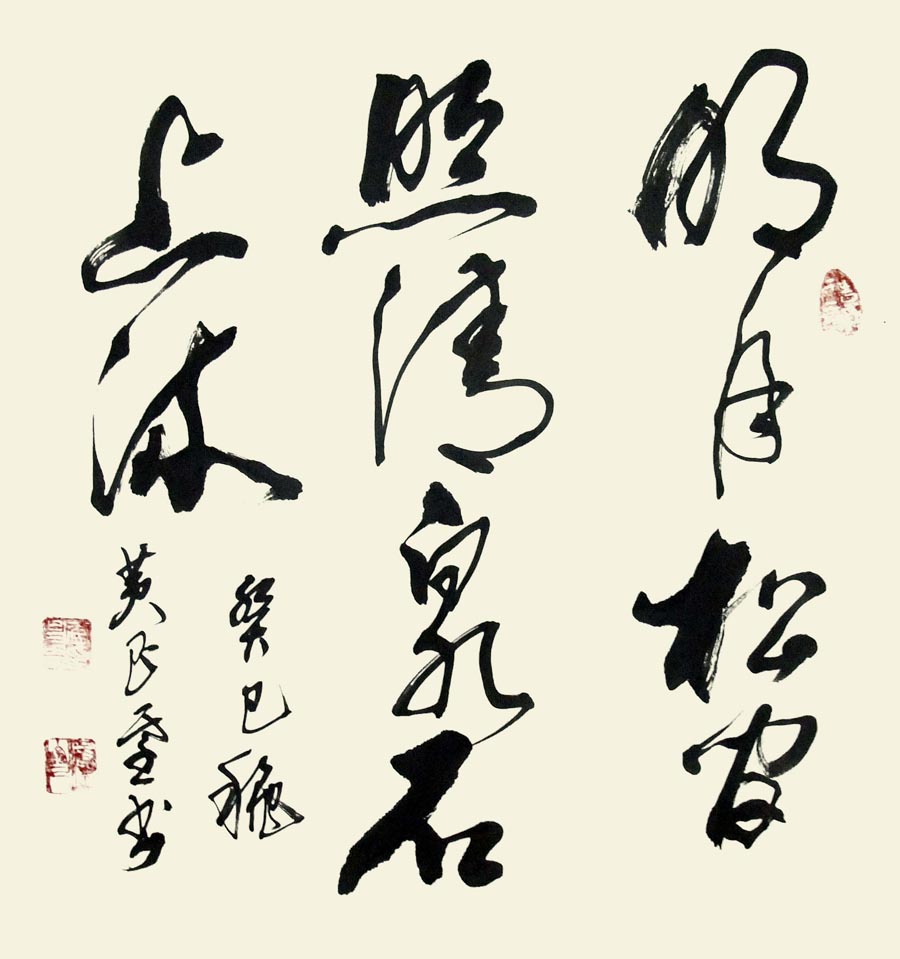 明月松間
照清泉石
上流
癸巳秋
黄民书